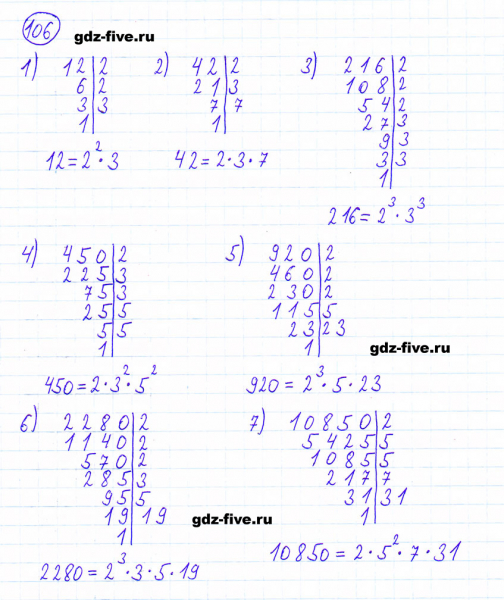 106
gdz-five.ru
1) 12|2 2) 42|2 3) 216|2
6|2 21|3 108|2
3|3 7|7 54|2
1| 1| 27|3
9|3
3|3
1|
12 = 2² · 3 42 = 2 · 3 · 7
216 = 2³ · 3³
4) 450|2 5) 920|2
225|3 460|2
75|3 230|2
25|5 115|5
5|5 23|23
1| 1|
gdz-five.ru
450 = 2 · 3² · 5² 920 = 2³ · 5 · 23
6) 2280|2 7) 10850|2
1140|2 5425|5
570|2 1085|5
285|3 217|7
95|5 31|31
19|19 1|
1|
gdz-five.ru
2280 = 2³ · 3 · 5 · 19 10850 = 2 · 5² · 7 · 31